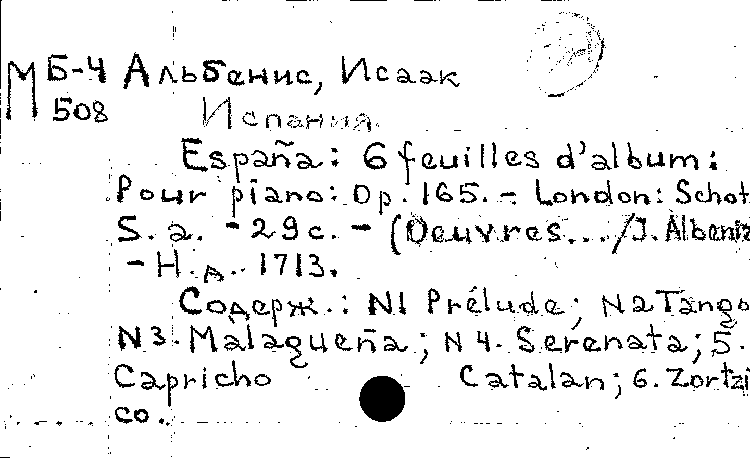 М Б-4 Альбенис, Исаак
508 Испания.
España: 6 feuilles d'album:
Pour piano: Op. 165. - London: Schot
S. a. - 29 с. - (Oeuvres... / J. Albeniz
- Н. д. 1713.
Содерж.: N1 Prélude; N2 Tango
N3. Malagueña; N 4. Serenata; 5.
Capricho Catalan; 6. Zortzi
co.